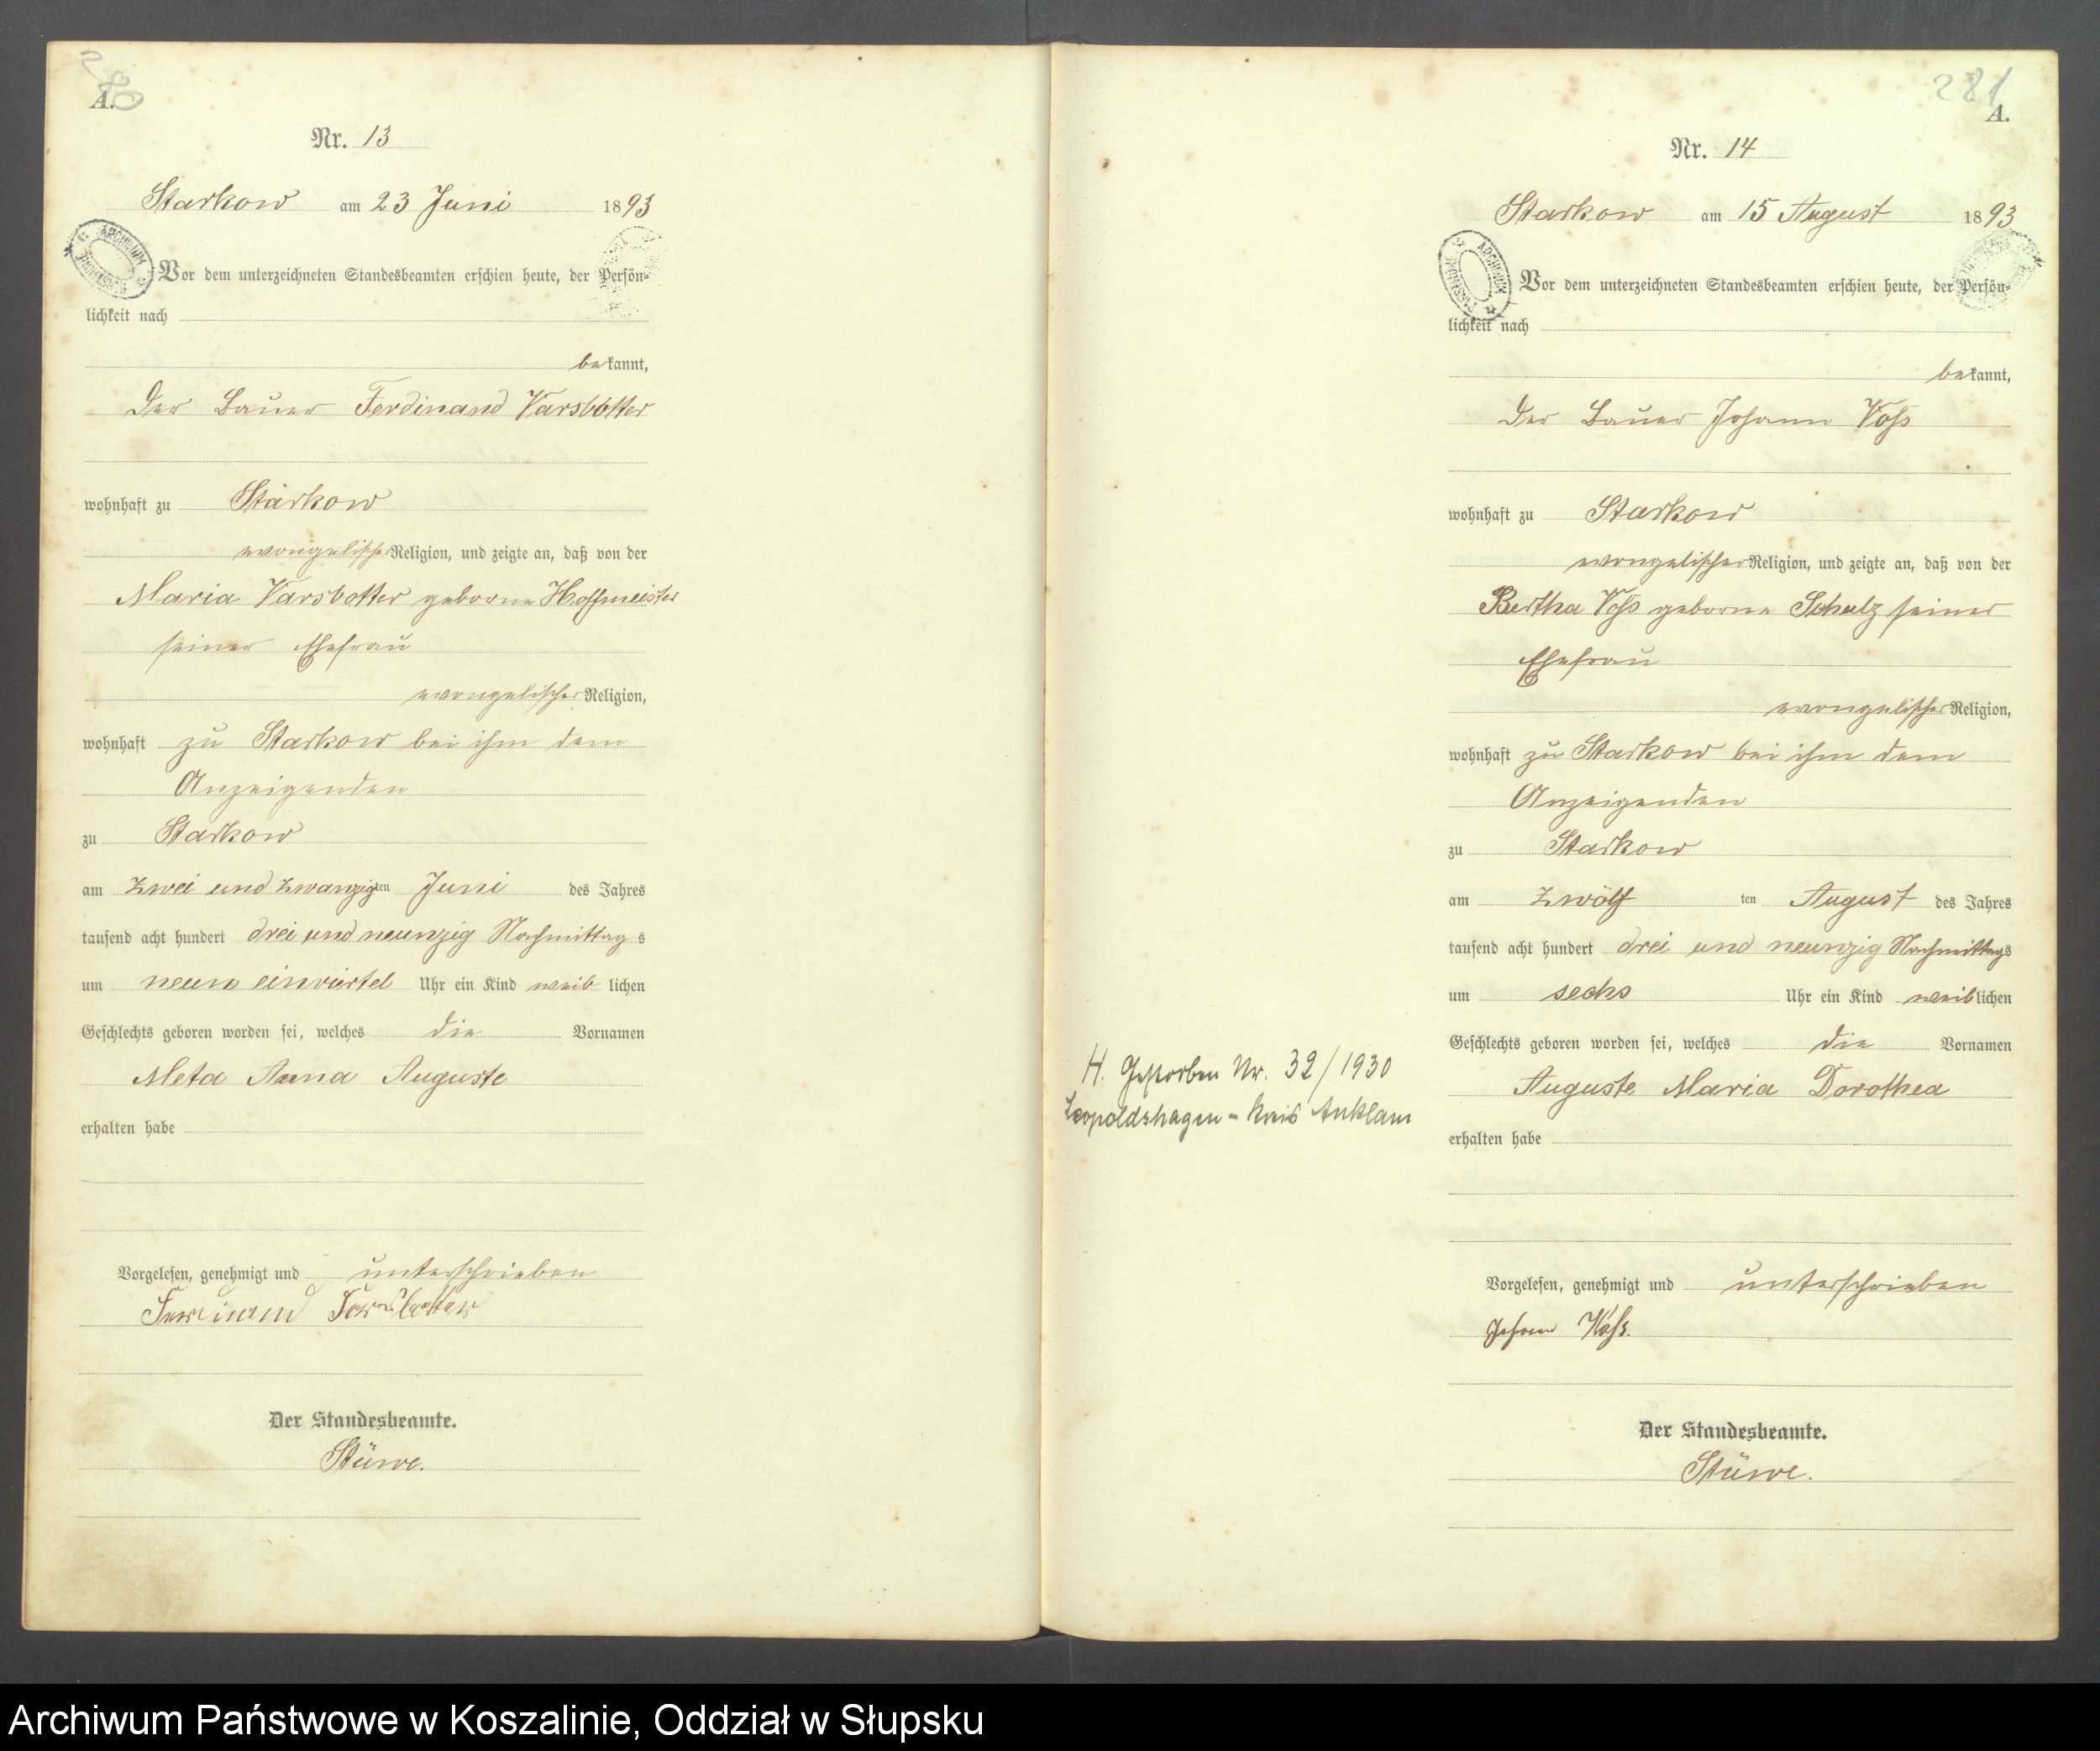 280
A.
Nr. 13
Starkow am 23 Juni 1893
ARCHIWUM
Vor dem unterzeichneten Standesbeamten erschien heute, der Persön-
lichkeit nach
bekannt,
der Bauer Ferdinand Varsbotter
wohnhaft zu Starkow
evangelischer Religion, und zeigte an, daß von der
Maria Varsbotter geborne Hoffmeister
seiner Ehefrau
evangelischer Religion,
wohnhaft zu Starkow bei ihm dem
Anzeigenden
zu Starkow
am zwei und zwanzigten Juni des Jahres
tausend acht hundert drei und neunzig Nachmittags
um neun einviertel Uhr ein Kind weiblichen
Geschlechts geboren worden sei, welches die Vornamen
Meta Anna Auguste
erhalten habe
Vorgelesen, genehmigt und unterschrieben
Ferdinand Varsbotter
Der Standesbeamte.
Stüwe.
281
A.
Nr. 14
Starkow am 15 August 1893
ARCHIWUM
Vor dem unterzeichneten Standesbeamten erschien heute, der Persön-
lichkeit nach
bekannt,
der Bauer Johann Voß
wohnhaft zu Starkow
evangelischer Religion, und zeigte an, daß von der
Bertha Voß geborne Schulz seiner
Ehefrau
evangelischer Religion,
wohnhaft zu Starkow bei ihm dem
Anzeigenden
zu Starkow
am zwölften August des Jahres
tausend acht hundert drei und neunzig Nachmittags
um sechs Uhr ein Kind weiblichen
Geschlechts geboren worden sei, welches die Vornamen
Auguste Maria Dorothea
erhalten habe
H. Gestorben Nr. 32/1930
Leopoldshagen - Kreis Anklam
Vorgelesen, genehmigt und unterschrieben
Johann Voß.
Der Standesbeamte.
Stüwe.
Archiwum Państwowe w Koszalinie, Oddział w Słupsku